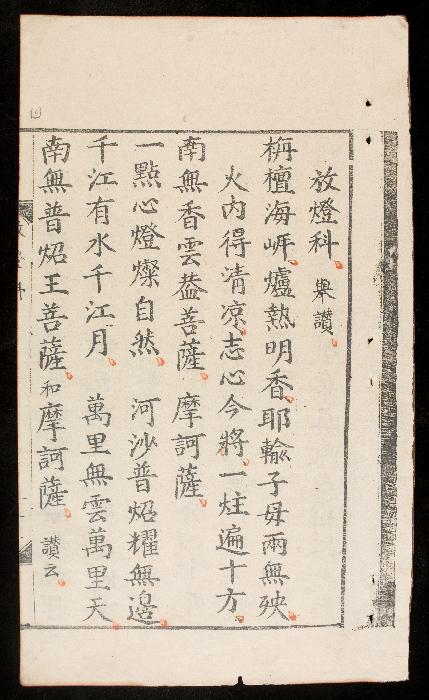 放燈科 舉讚
栴檀海岸爐熱明香耶輸子母兩無殃
火內得清凉志心今將一炷遍十方
南無香雲葢菩薩 摩訶薩
一點心燈燦自然 河沙普炤耀無邉
千江有水千江月 萬里無雲萬里天
南無普炤王菩薩 和摩訶薩 讃云